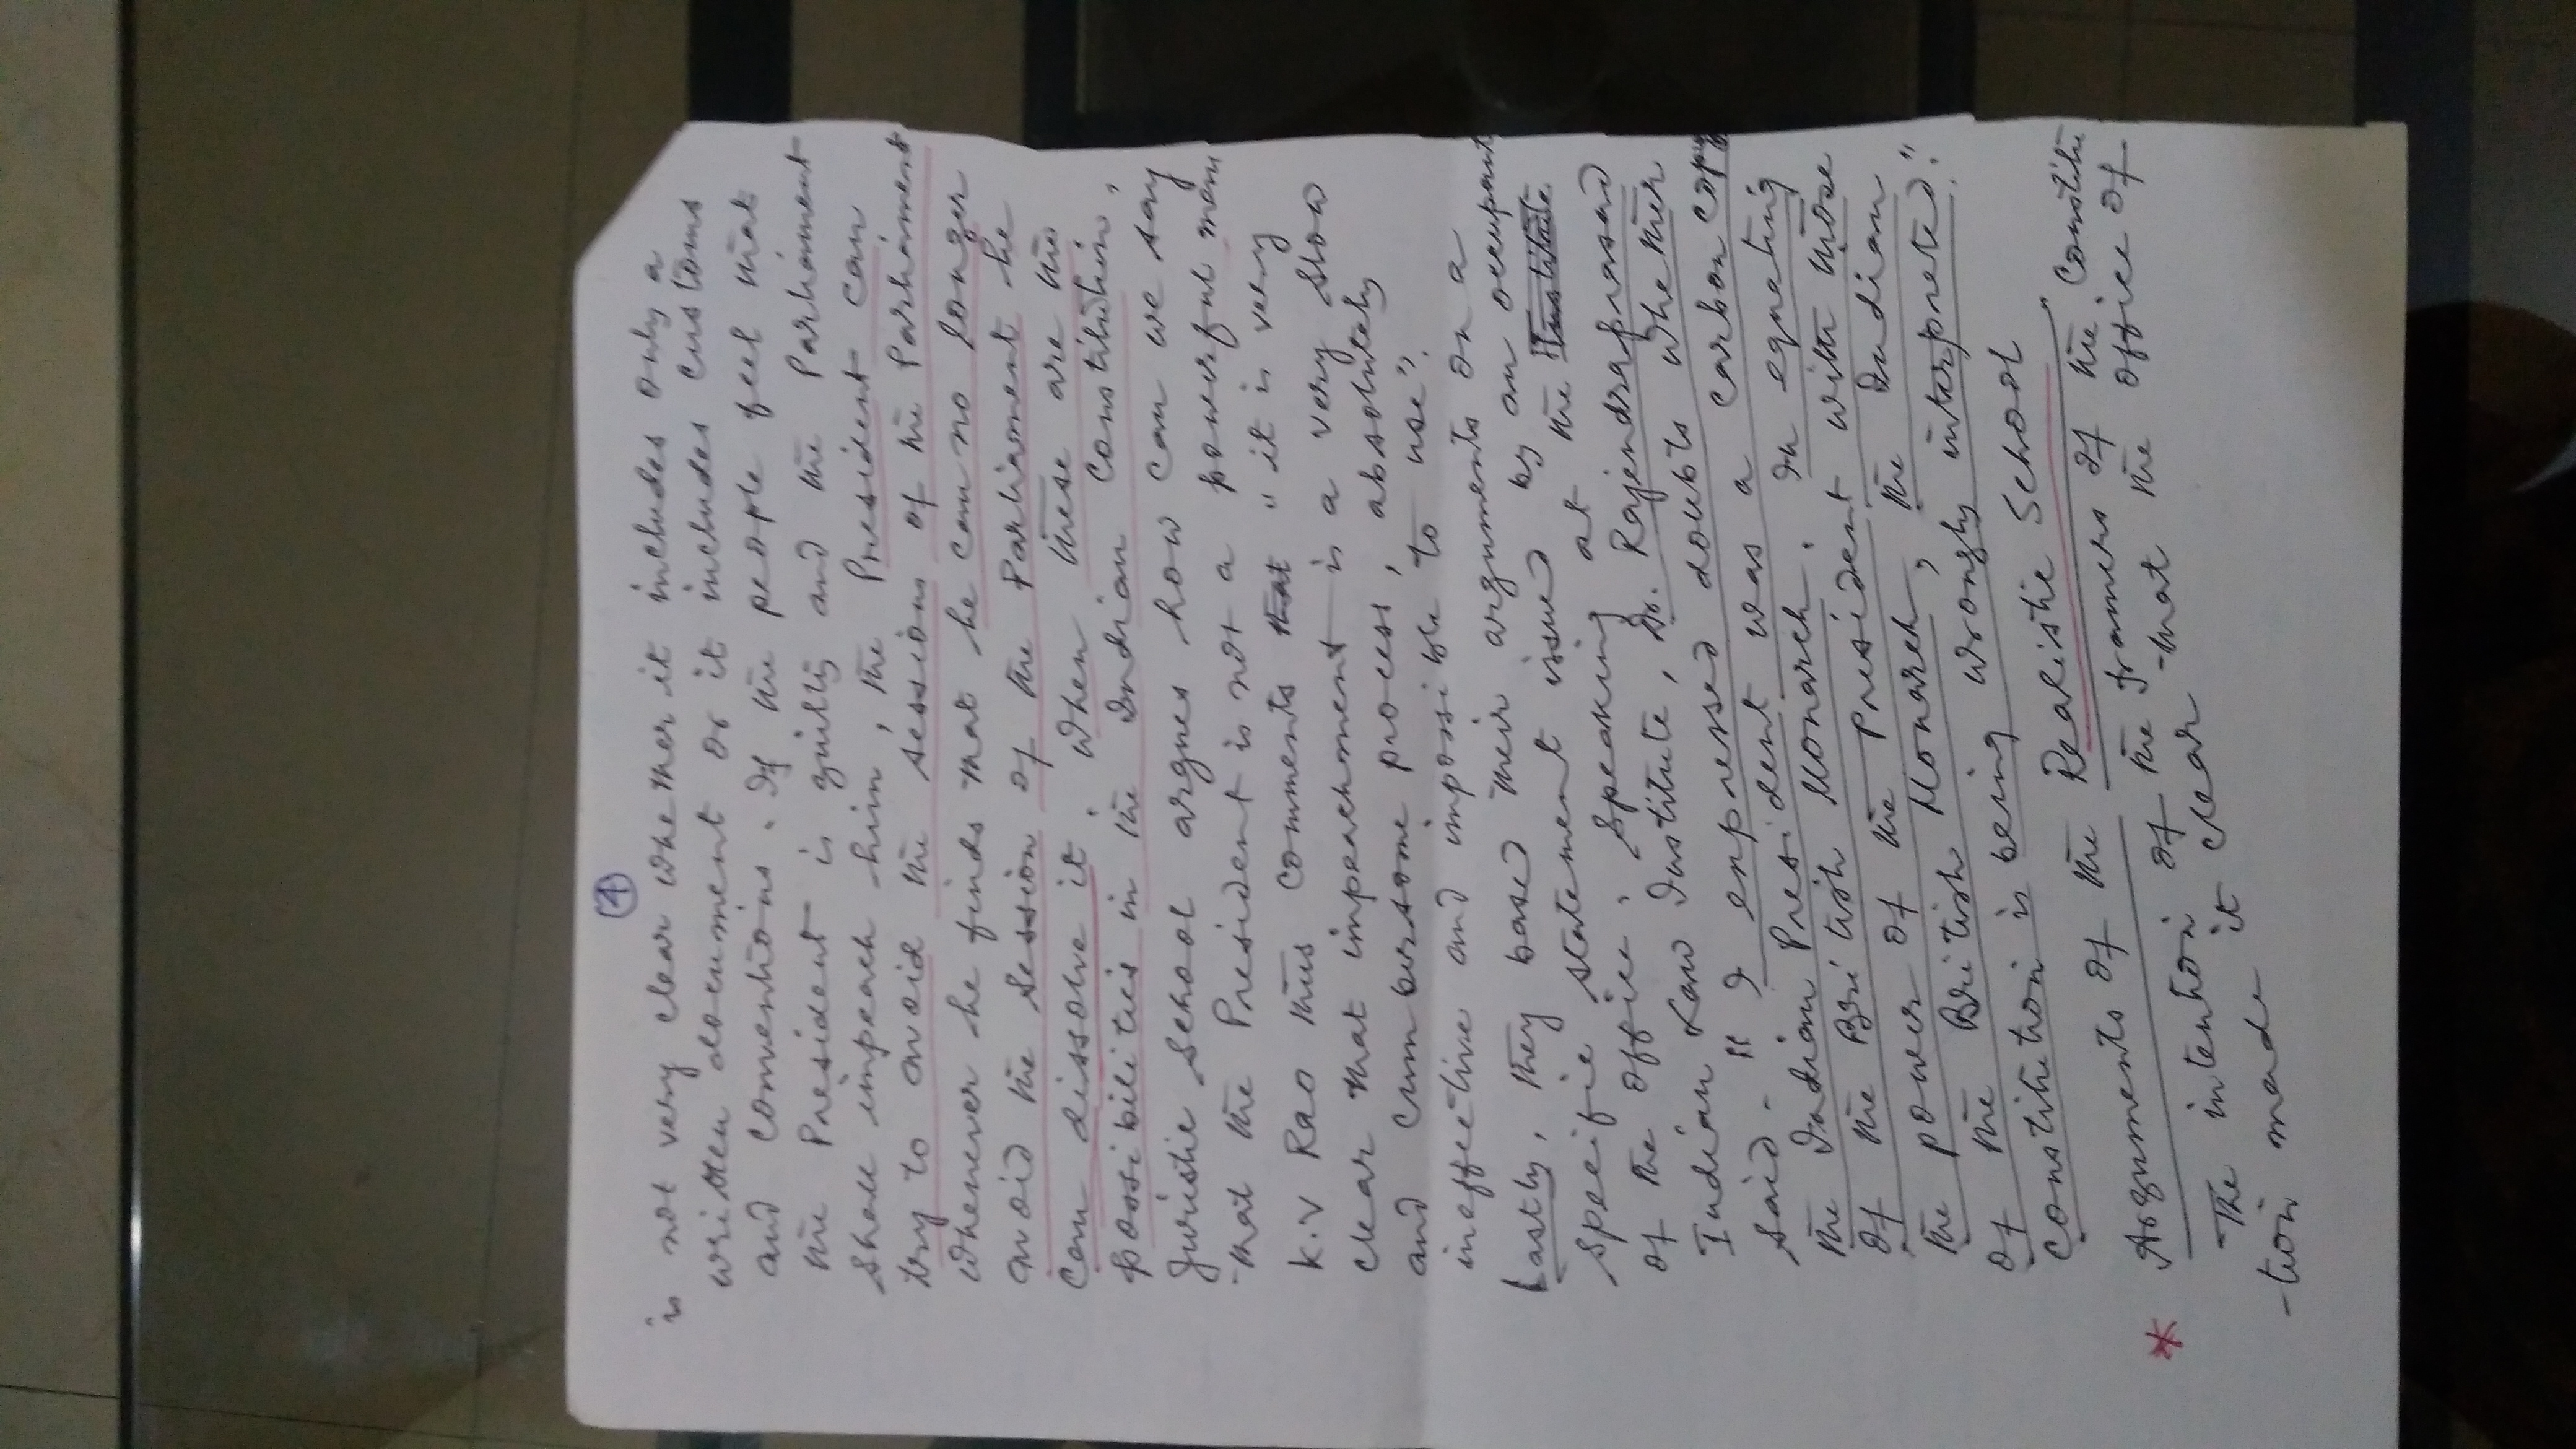 4
is not very clear whether it includes only a
written document or it includes customs
and conventions. If the people feel that
the President is guilty and the Parliament
shall impeach him, the President can
try to avoid the sessions of the Parliament
whenever he finds that he can no longer
avoid the session of the Parliament he
can dissolve it. When these are the
possibilities in the Indian Constitution,
Juristic School argues how can we say
that the President is not a powerful man
K.V Rao thus comments that "it is very
clear that impeachment is a very slow
and cumbursome process, absolutely
ineffective and impossible to use".
Lastly, they based their arguments on a
specific statement issued by an occupant
of the office. Speaking at the Institute
Indian Law Institute, Dr. Rajendraprasad
said - "I expressed doubts whether
the Indian President was a carbon copy
of the British Monarch. In equating
the power of the President with those
of the British Monarch, the Indian
Constitution is being wrongly interpreted."
* Arguments of the Realistic School"
The intention of the framers of the Constitu
-tion made it clear that the office of